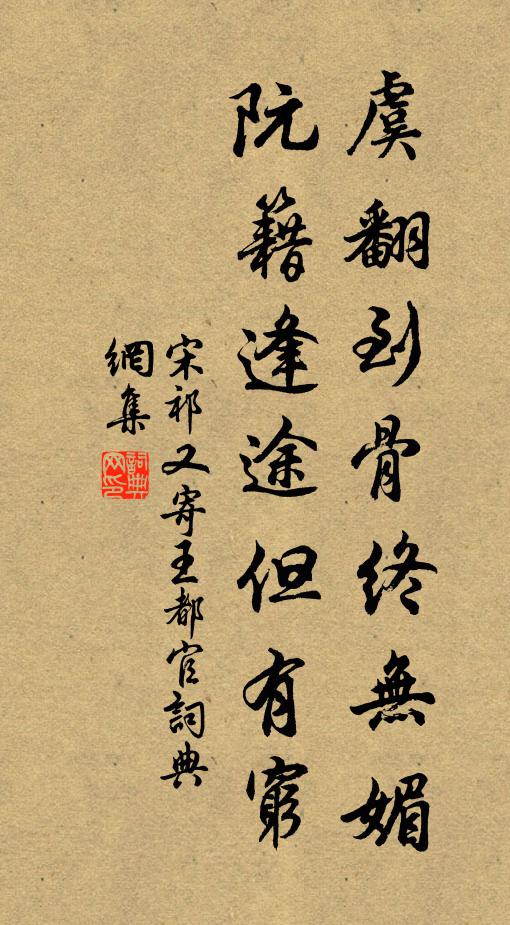 虞翻到骨終無媚
阮籍逢途但有窮
宋祁又寄王都官詞典
網集
詞典網印